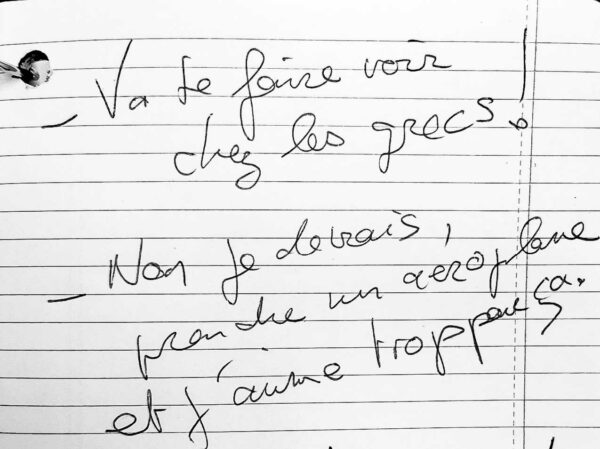 – Va te faire voir
chez les grecs !
– Non je devrais,
prendre un aeroplane
et j'aime trop peu ça.